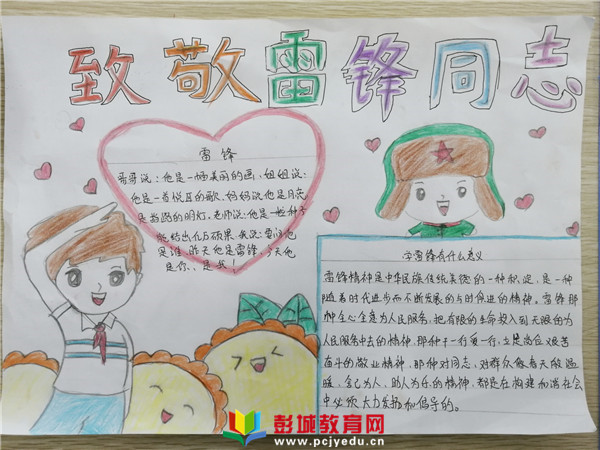 致敬雷锋同志
雷锋
哥哥说:他是一幅美丽的画,姐姐说:
他是一首悦耳的歌.妈妈说他是月夜
是指路的明灯,老师说:他是一粒种子
能结出亿万硕果.我说:雷锋他
是谁.昨天他是雷锋.今天他
是你、是我!
学雷锋有什么意义
雷锋精神是中华民族传统美德的一种积淀,是一种
随着时代进步而不断发展的与时俱进的精神。雷锋那
种全心全意为人民服务,把有限的生命投入到无限的为
人民服务中去的精神,那种干一行爱一行,立足岗位艰苦
奋斗的敬业精神,那种对同志,对群众像春天般温
暖,舍己为人,助人为乐的精神,都是在构建和谐社会
中必须大力发扬和倡导的。
彭城教育网
www.pcjyedu.cn